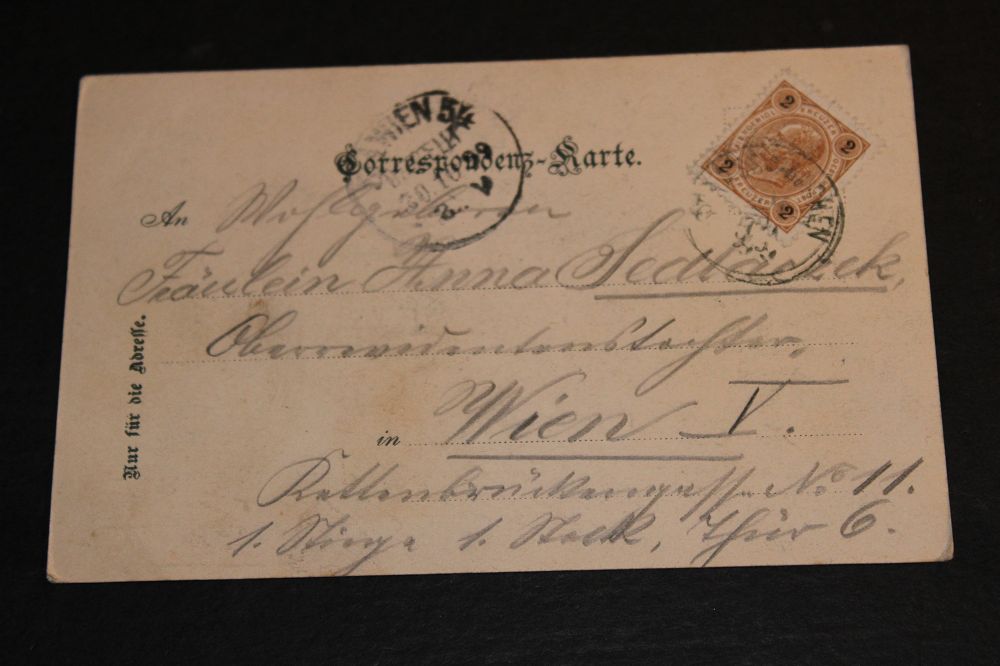 WIEN 54
30.10.99
Correspondenz-Karte.
2 2 2 2
An Wohlgeboren
Fräulein Anna Sedlaczek,
Oberrevidentenstochter,
in Wien V.
Kettenbrückengasse No 11.
1. Stiege 1. Stock, Thür 6.
Nur für die Adresse.